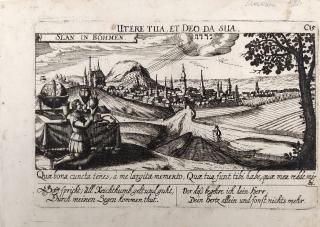 UTERE TUA, ET DEO DA SUA.
SLAN IN BÖHMEN
C15
Quæ bona cuncta tenes, a me largita memento, Quæ tua sunt tibi habe, quæ mea redde mihi.
Gott spricht: All Reichthumb, gelt und gutt,
Durch meinen Segen kommen thut.
Vor daß begehr ich kein Herr,
Dein hertz allein und sonst nichts mehr.